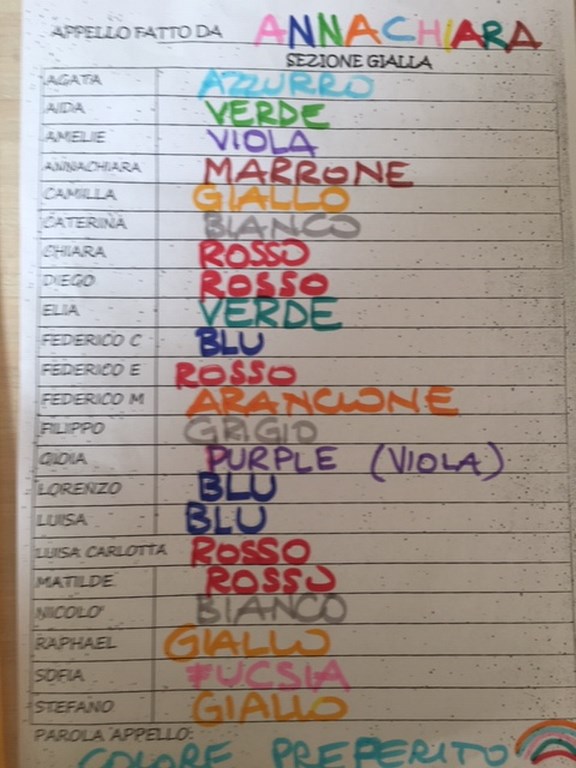 APPELLO FATTO DA ANNACHIARA
SEZIONE GIALLA
AGATA AZZURRO
AIDA VERDE
AMELIE VIOLA
ANNACHIARA MARRONE
CAMILLA GIALLO
CATERINA BIANCO
CHIARA ROSSO
DIEGO ROSSO
ELIA VERDE
FEDERICO C BLU
FEDERICO E ROSSO
FEDERICO M ARANCIONE
FILIPPO GRIGIO
GIOIA PURPLE (VIOLA)
LORENZO BLU
LUISA BLU
LUISA CARLOTTA ROSSO
MATILDE ROSSO
NICOLO' BIANCO
RAPHAEL GIALLO
SOFIA FUCSIA
STEFANO GIALLO
PAROLA APPELLO:
COLORE PREFERITO